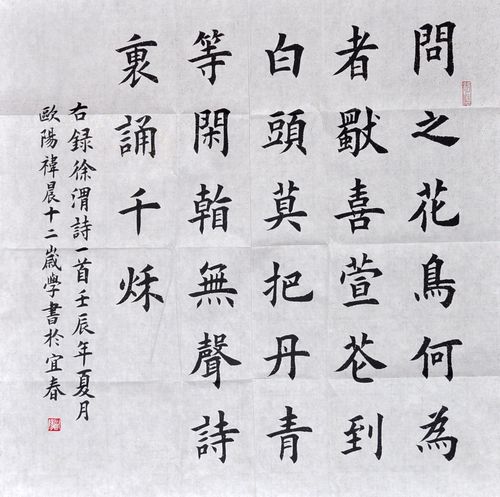 問之花鳥何為
者獨喜萱花到
白頭莫把丹青
等閑看無聲詩
裏誦千秋
右録徐渭詩一首壬辰年夏月
歐陽禕晨十二歲學書於宜春